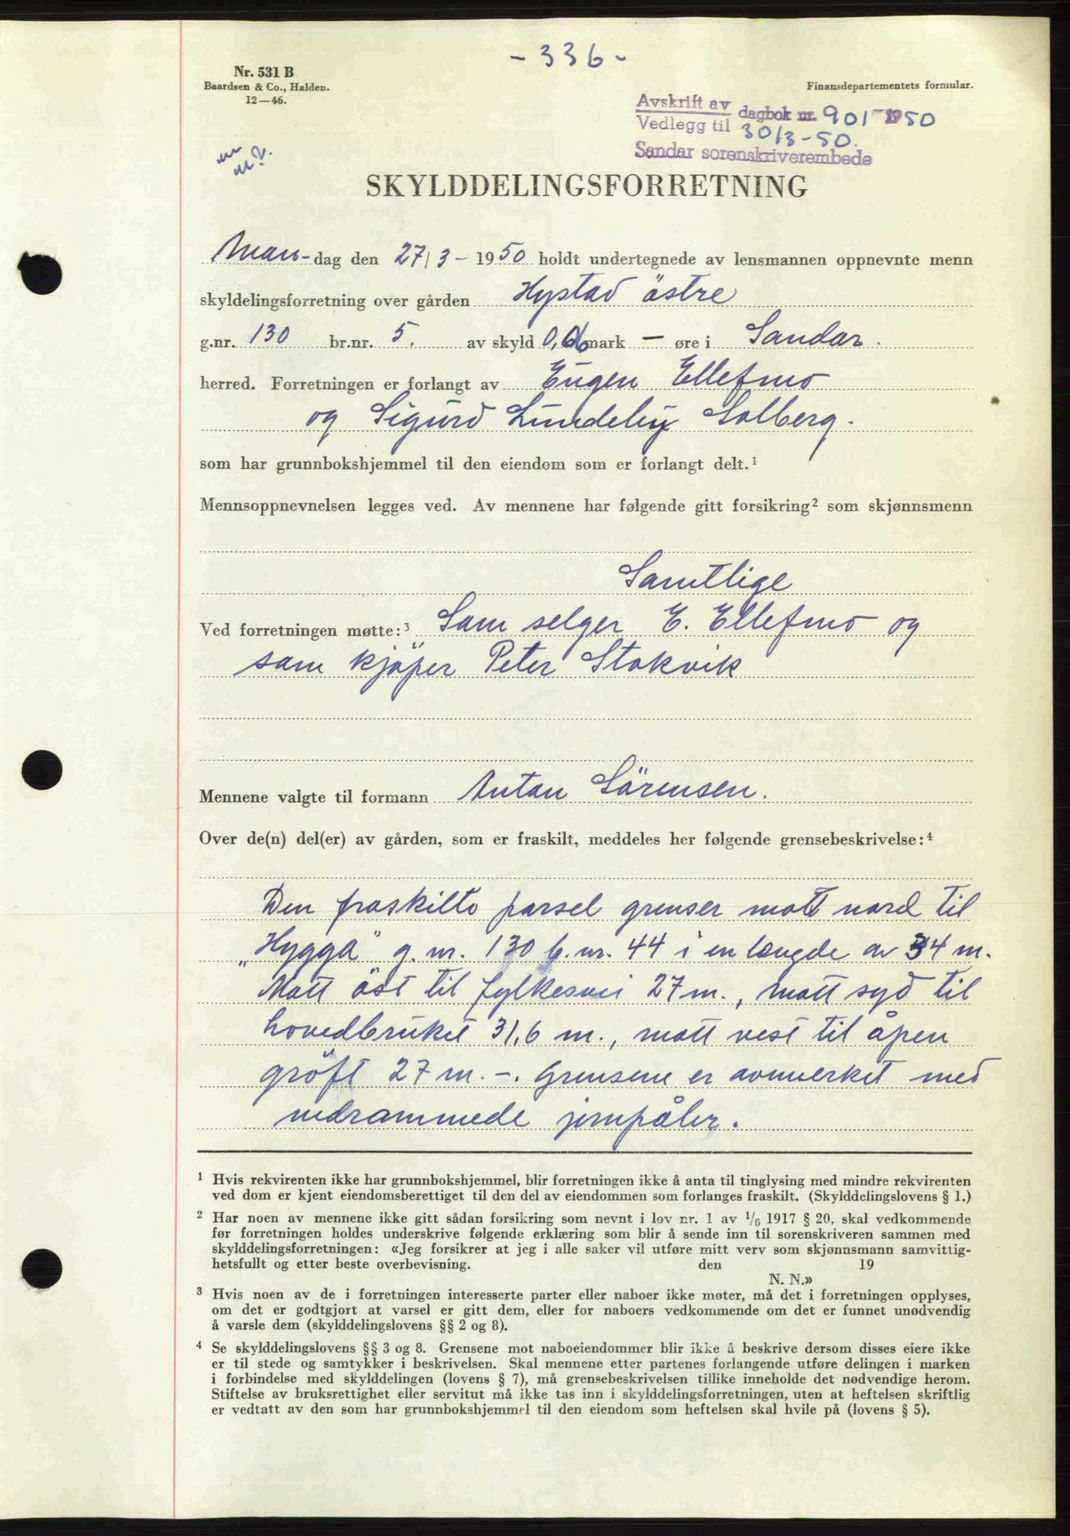 - 336 -
Nr. 531 B
Baardsen & Co., Halden.
12—46.
Finansdepartementets formular.
Avskrift av dagbok nr. 901-1950
Vedlegg til 30/3-50.
Sandar sorenskriverembede
SKYLDDELINGSFORRETNING
Man-dag den 27/3- 1950 holdt undertegnede av lensmannen oppnevnte menn
skyldelingsforretning over gården Hystad östre
g.nr. 130 br.nr. 5. av skyld 0,06 mark — øre i Sandar.
herred. Forretningen er forlangt av Eugen Ellefmo
og Sigurd Lundeby Solberg.
som har grunnbokshjemmel til den eiendom som er forlangt delt.¹
Mennsoppnevnelsen legges ved. Av mennene har følgende gitt forsikring² som skjønnsmenn
Samtlige
Ved forretningen møtte:³ Som selger E. Ellefmo og
som kjöper Peter Stokvik
Mennene valgte til formann Anton Sörensen.
Over de(n) del(er) av gården, som er fraskilt, meddeles her følgende grensebeskrivelse:⁴
Den fraskilte parsel grenser mott nord til
„Hygga" g.nr. 130 b.nr. 44 i en længde av 34 m.
Mott öst til fylkesvei 27 m., mott syd til
hovedbruket 31,6 m., mott vest til åpen
gröft 27 m. -. Grensene er avmerket med
nedrammede jernpåler.
¹ Hvis rekvirenten ikke har grunnbokshjemmel, blir forretningen ikke å anta til tinglysing med mindre rekvirenten
ved dom er kjent eiendomsberettiget til den del av eiendommen som forlanges fraskilt. (Skylddelingslovens § 1.)
² Har noen av mennene ikke gitt sådan forsikring som nevnt i lov nr. 1 av 1/6 1917 § 20, skal vedkommende
før forretningen holdes underskrive følgende erklæring som blir å sende inn til sorenskriveren sammen med
skylddelingsforretningen: «Jeg forsikrer at jeg i alle saker vil utføre mitt verv som skjønnsmann samvittig-
hetsfullt og etter beste overbevisning. den 19
N. N.»
³ Hvis noen av de i forretningen interesserte parter eller naboer ikke møter, må det i forretningen opplyses,
om det er godtgjort at varsel er gitt dem, eller for naboers vedkommende om det er funnet unødvendig
å varsle dem (skylddelingslovens §§ 2 og 8).
⁴ Se skylddelingslovens §§ 3 og 8. Grensene mot naboeiendommer blir ikke å beskrive dersom disses eiere ikke
er til stede og samtykker i beskrivelsen. Skal mennene etter partenes forlangende utføre delingen i marken
i forbindelse med skylddelingen (lovens § 7), må grensebeskrivelsen tillike inneholde det nødvendige herom.
Stiftelse av bruksrettighet eller servitut må ikke tas inn i skylddelingsforretningen, uten at heftelsen skriftlig
er vedtatt av den som har grunnbokshjemmel til den eiendom som heftelsen skal hvile på (lovens § 5).